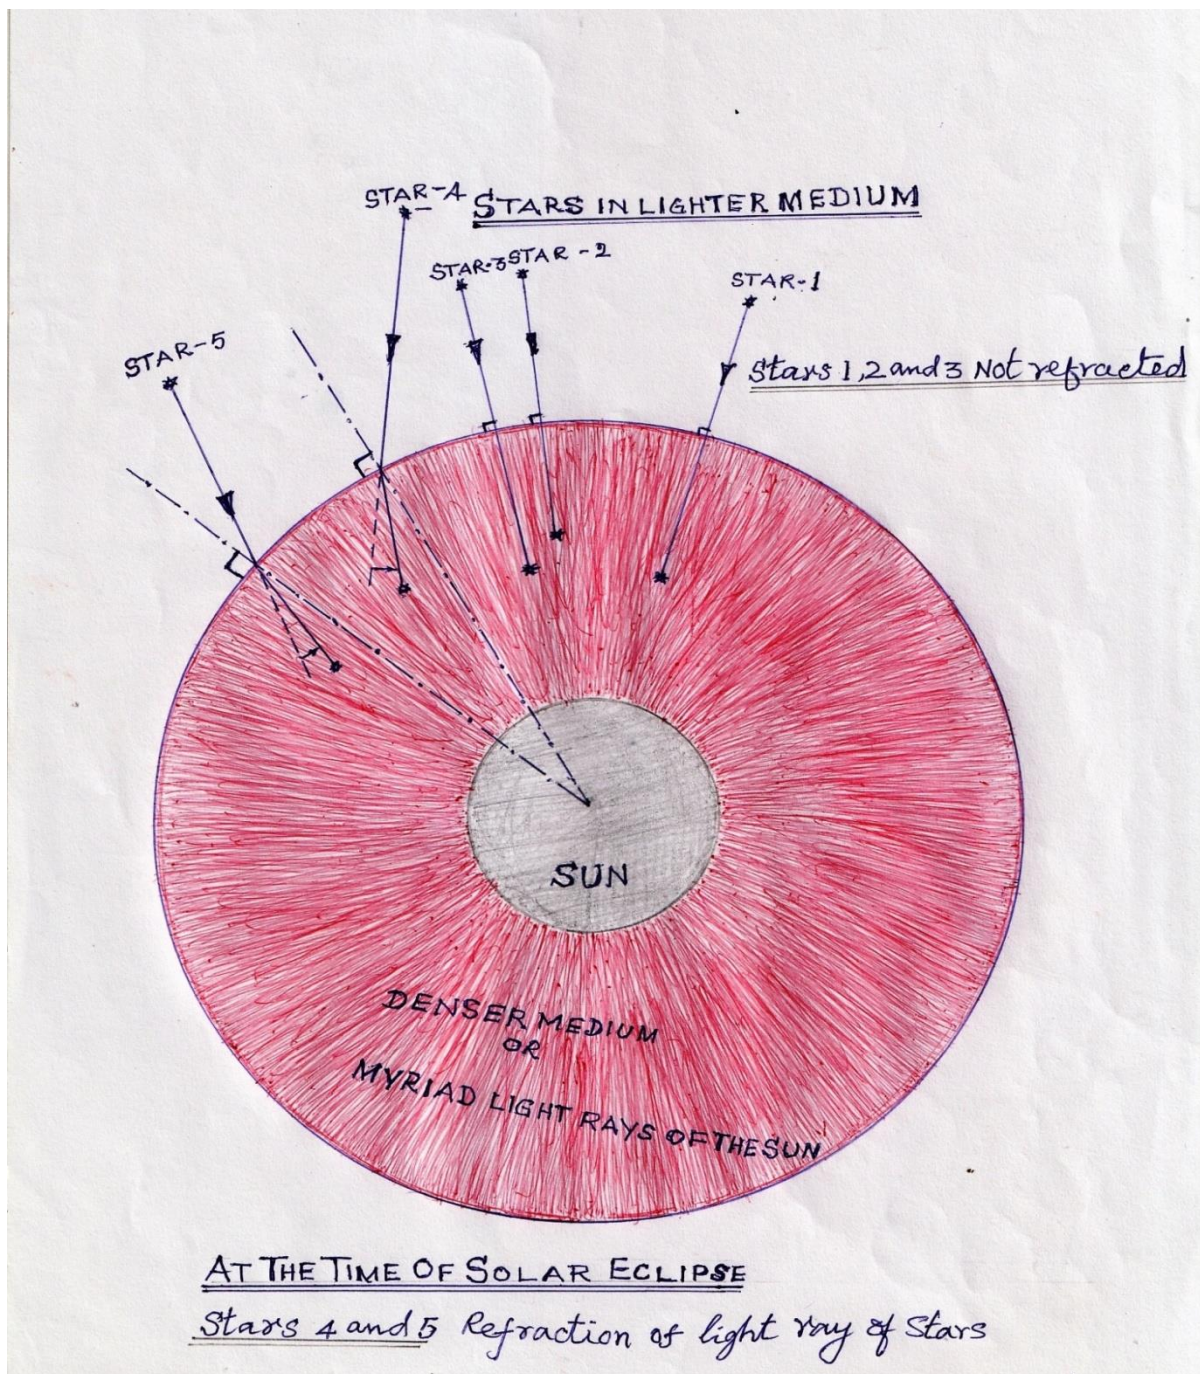 STAR-4
STARS IN LIGHTER MEDIUM
STAR-3
STAR-2
STAR-1
STAR-5
Stars 1,2 and 3 Not refracted
SUN
DENSER MEDIUM
OR
MYRIAD LIGHT RAYS OF THE SUN
AT THE TIME OF SOLAR ECLIPSE
Stars 4 and 5 Refraction of light ray of Stars